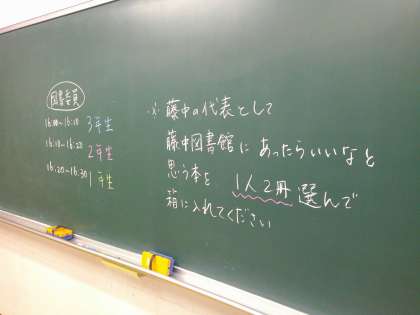 図書委員
16:00~16:10 3年生
16:10~16:20 2年生
16:20~16:30 1年生
※ 藤中の代表として
藤中図書館にあったらいいなと
思う本を 1人2冊 選んで
箱に入れてください